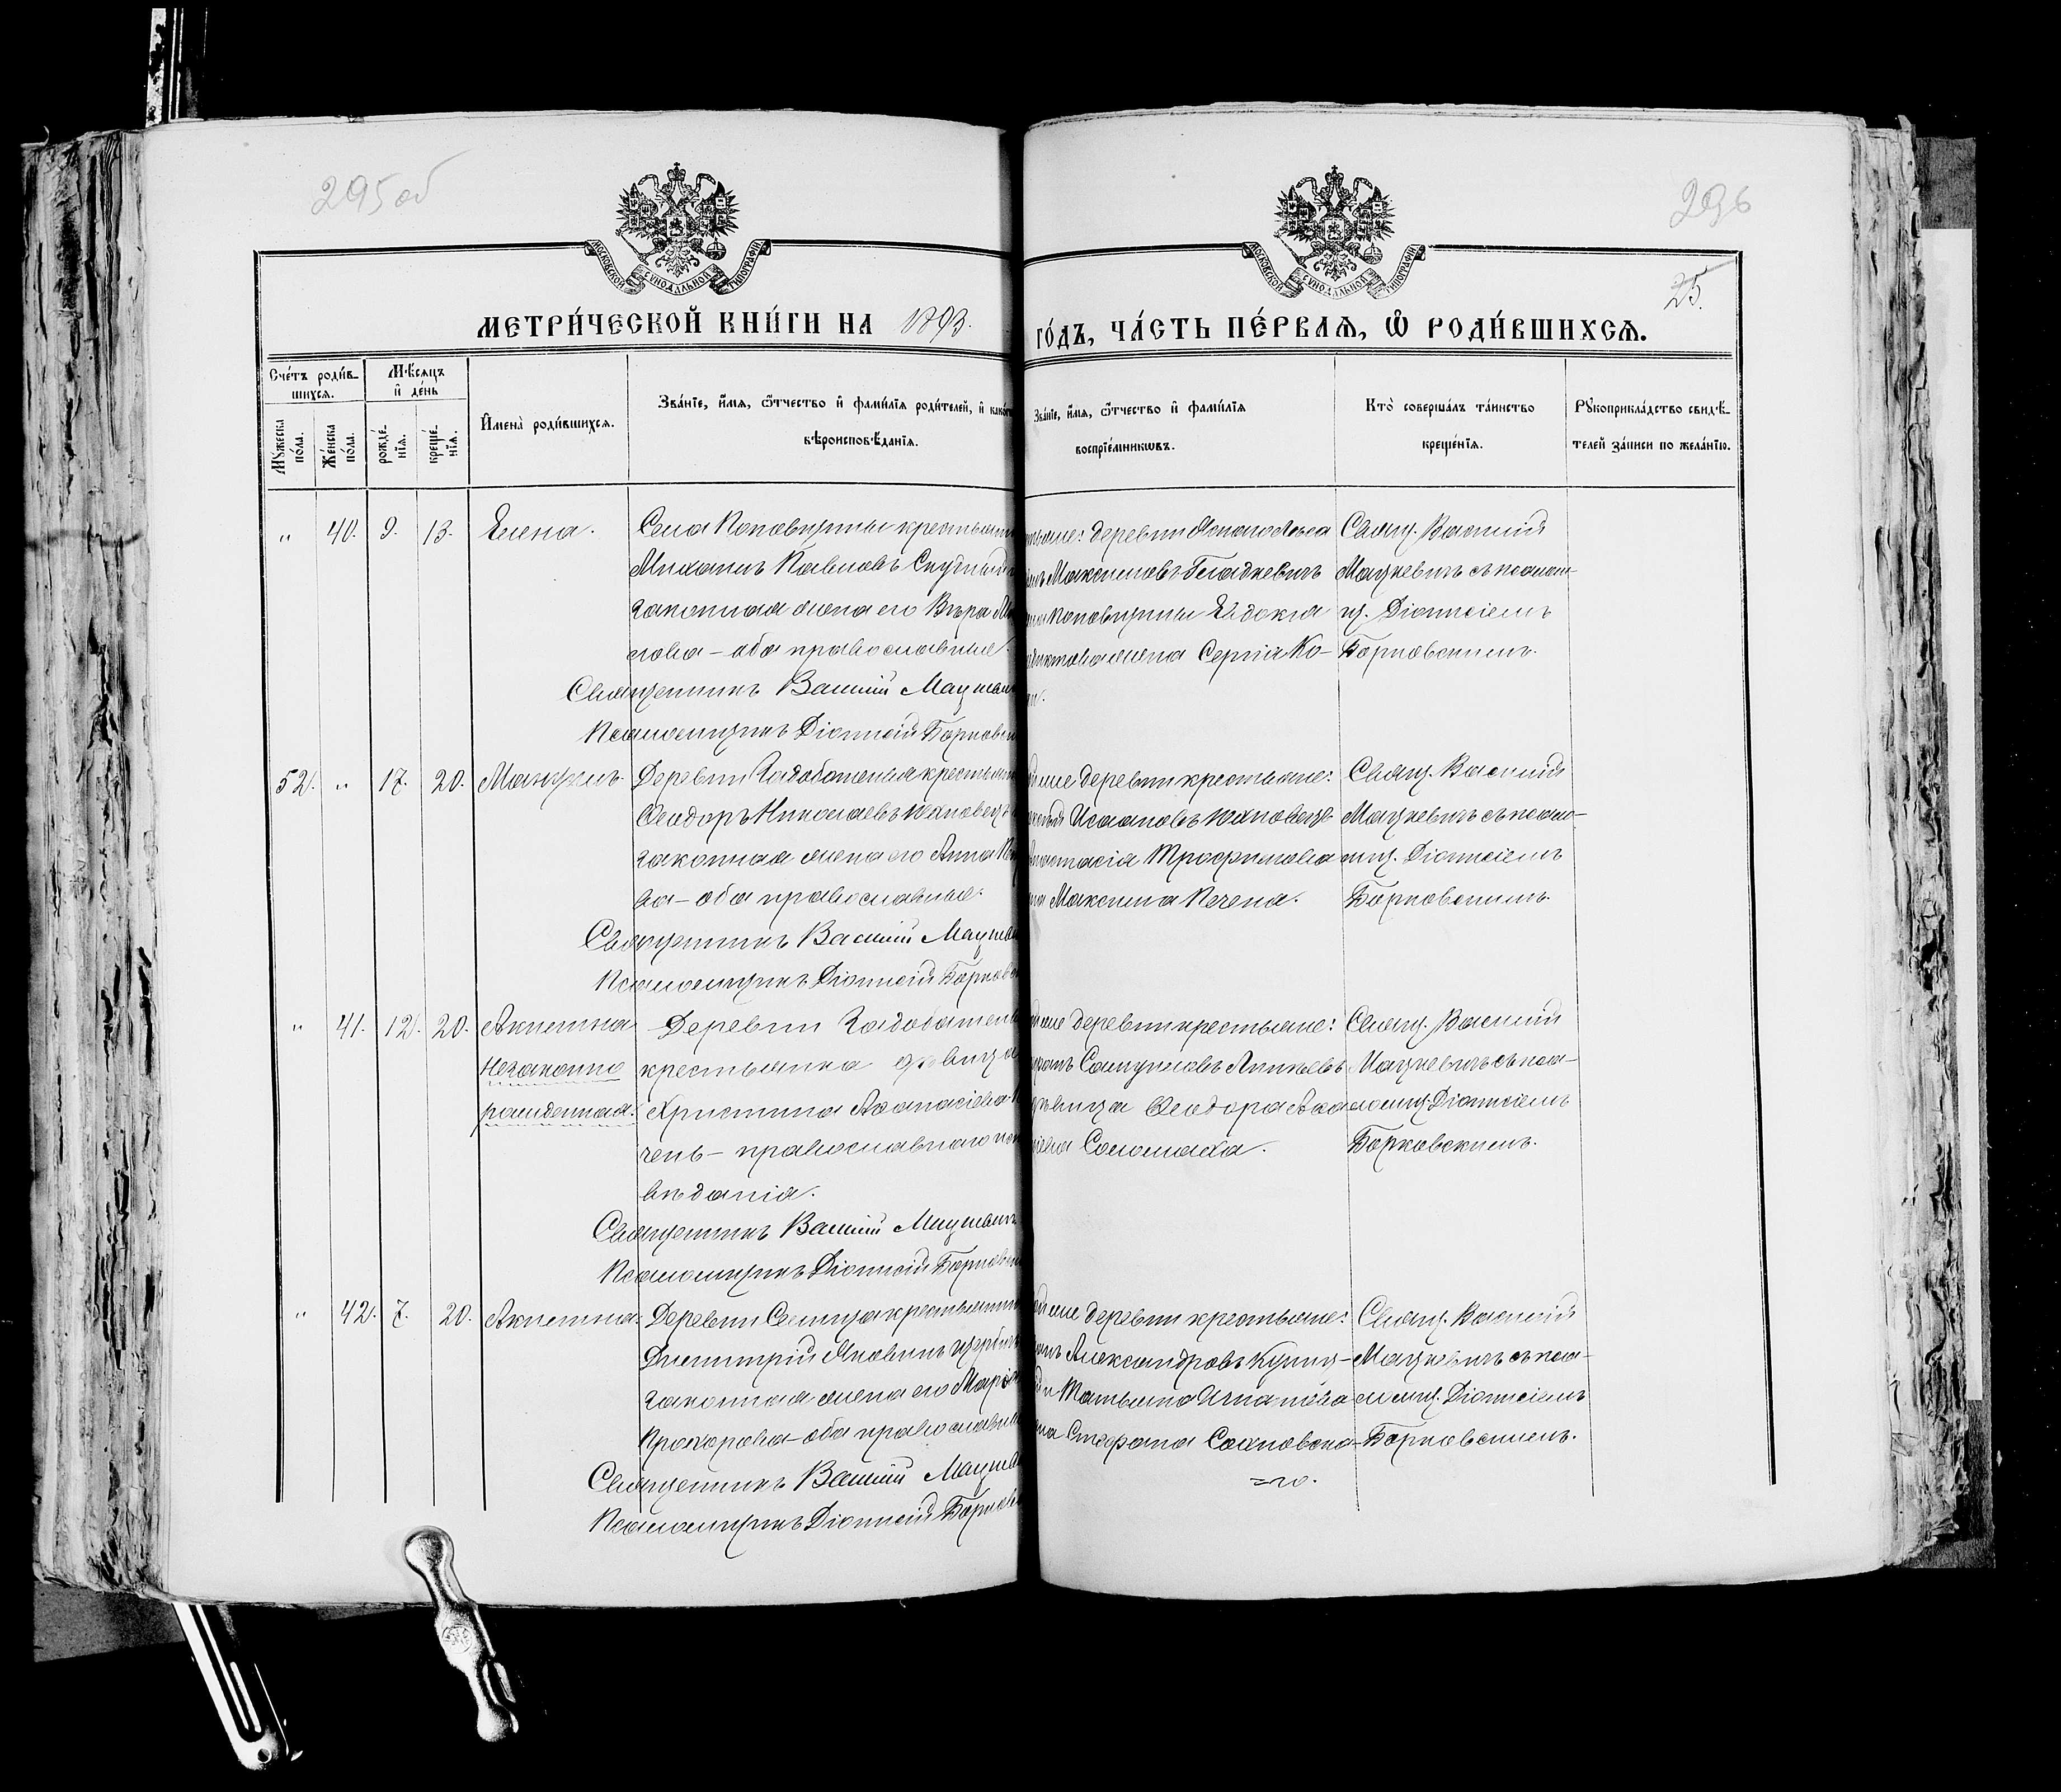 295 об
296
МОСКОВСКОЙ СУНОДАЛЬНОЙ ТИПОГРАФІИ
МОСКОВСКОЙ СУНОДАЛЬНОЙ ТИПОГРАФІИ
25.
МЕТРИ́ЧЕСКОЙ КНИ́ГИ НА 1893.
ГО́ДЪ, ЧА́СТЬ ПЕ́РВАѦ, Ѡ҆ РОДИ́ВШИХСѦ.
Сче́тъ роди́в-
шихсѧ.
Мѣ́сѧцъ
и҆ де́нь
Мꙋ́жеска
по́ла.
Же́нска
по́ла.
рожде́-
нїѧ.
креще́-
нїѧ.
И҆мена̀ роди́вшихсѧ.
Зва́нїе, и҆́мѧ, ѻ҆́тчество и҆ фами́лїѧ роди́телей, и҆ како́гѡ
вѣроисповѣ́данїѧ.
Зва́нїе, и҆́мѧ, ѻ҆́тчество и҆ фами́лїѧ
воспрїе́мникѡвъ.
Кто̀ соверша́лъ та́инство
креще́нїѧ.
Рꙋкоприкла́дство свидѣ́-
телей за́писи по жела́нїю.
" 40. 9. 13. Елена. Села Поповщины крестьян
Михаилъ Павловъ
законная жена его Вѣра
лова – оба православные.
Священникъ Василій Мацкев
Псаломщикъ Діонисій Борковск
деревни
Максимовъ Гладкевичъ
Поповщины Евдокія
жена Сергія Ко-
Свящ. Василій
Мацкевичъ съ псалом-
щ. Діонисіемъ
Борковскимъ.
52. " 17. 20. Мануилъ. Деревни крестьян
Ѳеодоръ Николаевъ Юхновецъ
законная жена его Анна
ва – оба православные.
Священникъ Василій Мацкев
Псаломщикъ Діонисій Борковс
деревни крестьяне:
Исааковъ Юхновецъ
Анастасія Трофимова
Максима Печена.
Свящ. Василій
Мацкевичъ съ псало-
мщ. Діонисіемъ
Борковскимъ.
" 41. 12. 20. Акилина
незаконно
рожденная.
Деревни
крестьянка дѣвица
Христина Аѳанасіева
чень – православнаго испо
вѣданія.
Священникъ Василій Мацкевичъ
Псаломщикъ Діонисій Борковск
деревни крестьяне:
Самуиловъ
дѣвица Ѳеодора Аѳа
сіева Соломаха.
Свящ. Василій
Мацкевичъ съ пса-
ломщ. Діонисіемъ
Борковскимъ.
" 42. 7. 20. Акилина. Деревни Селища крестьянин
Димитрій Яковлевъ
законная жена его Марія
Прохорова – оба православн
Священникъ Василій Мацкев
Псаломщикъ Діонисій Борковс
деревни крестьяне:
Александровъ
Татьяна Игнатова
Стефана Сахновска-
=го.
Свящ. Василій
Мацкевичъ съ пса-
ломщ. Діонисіемъ
Борковскимъ.